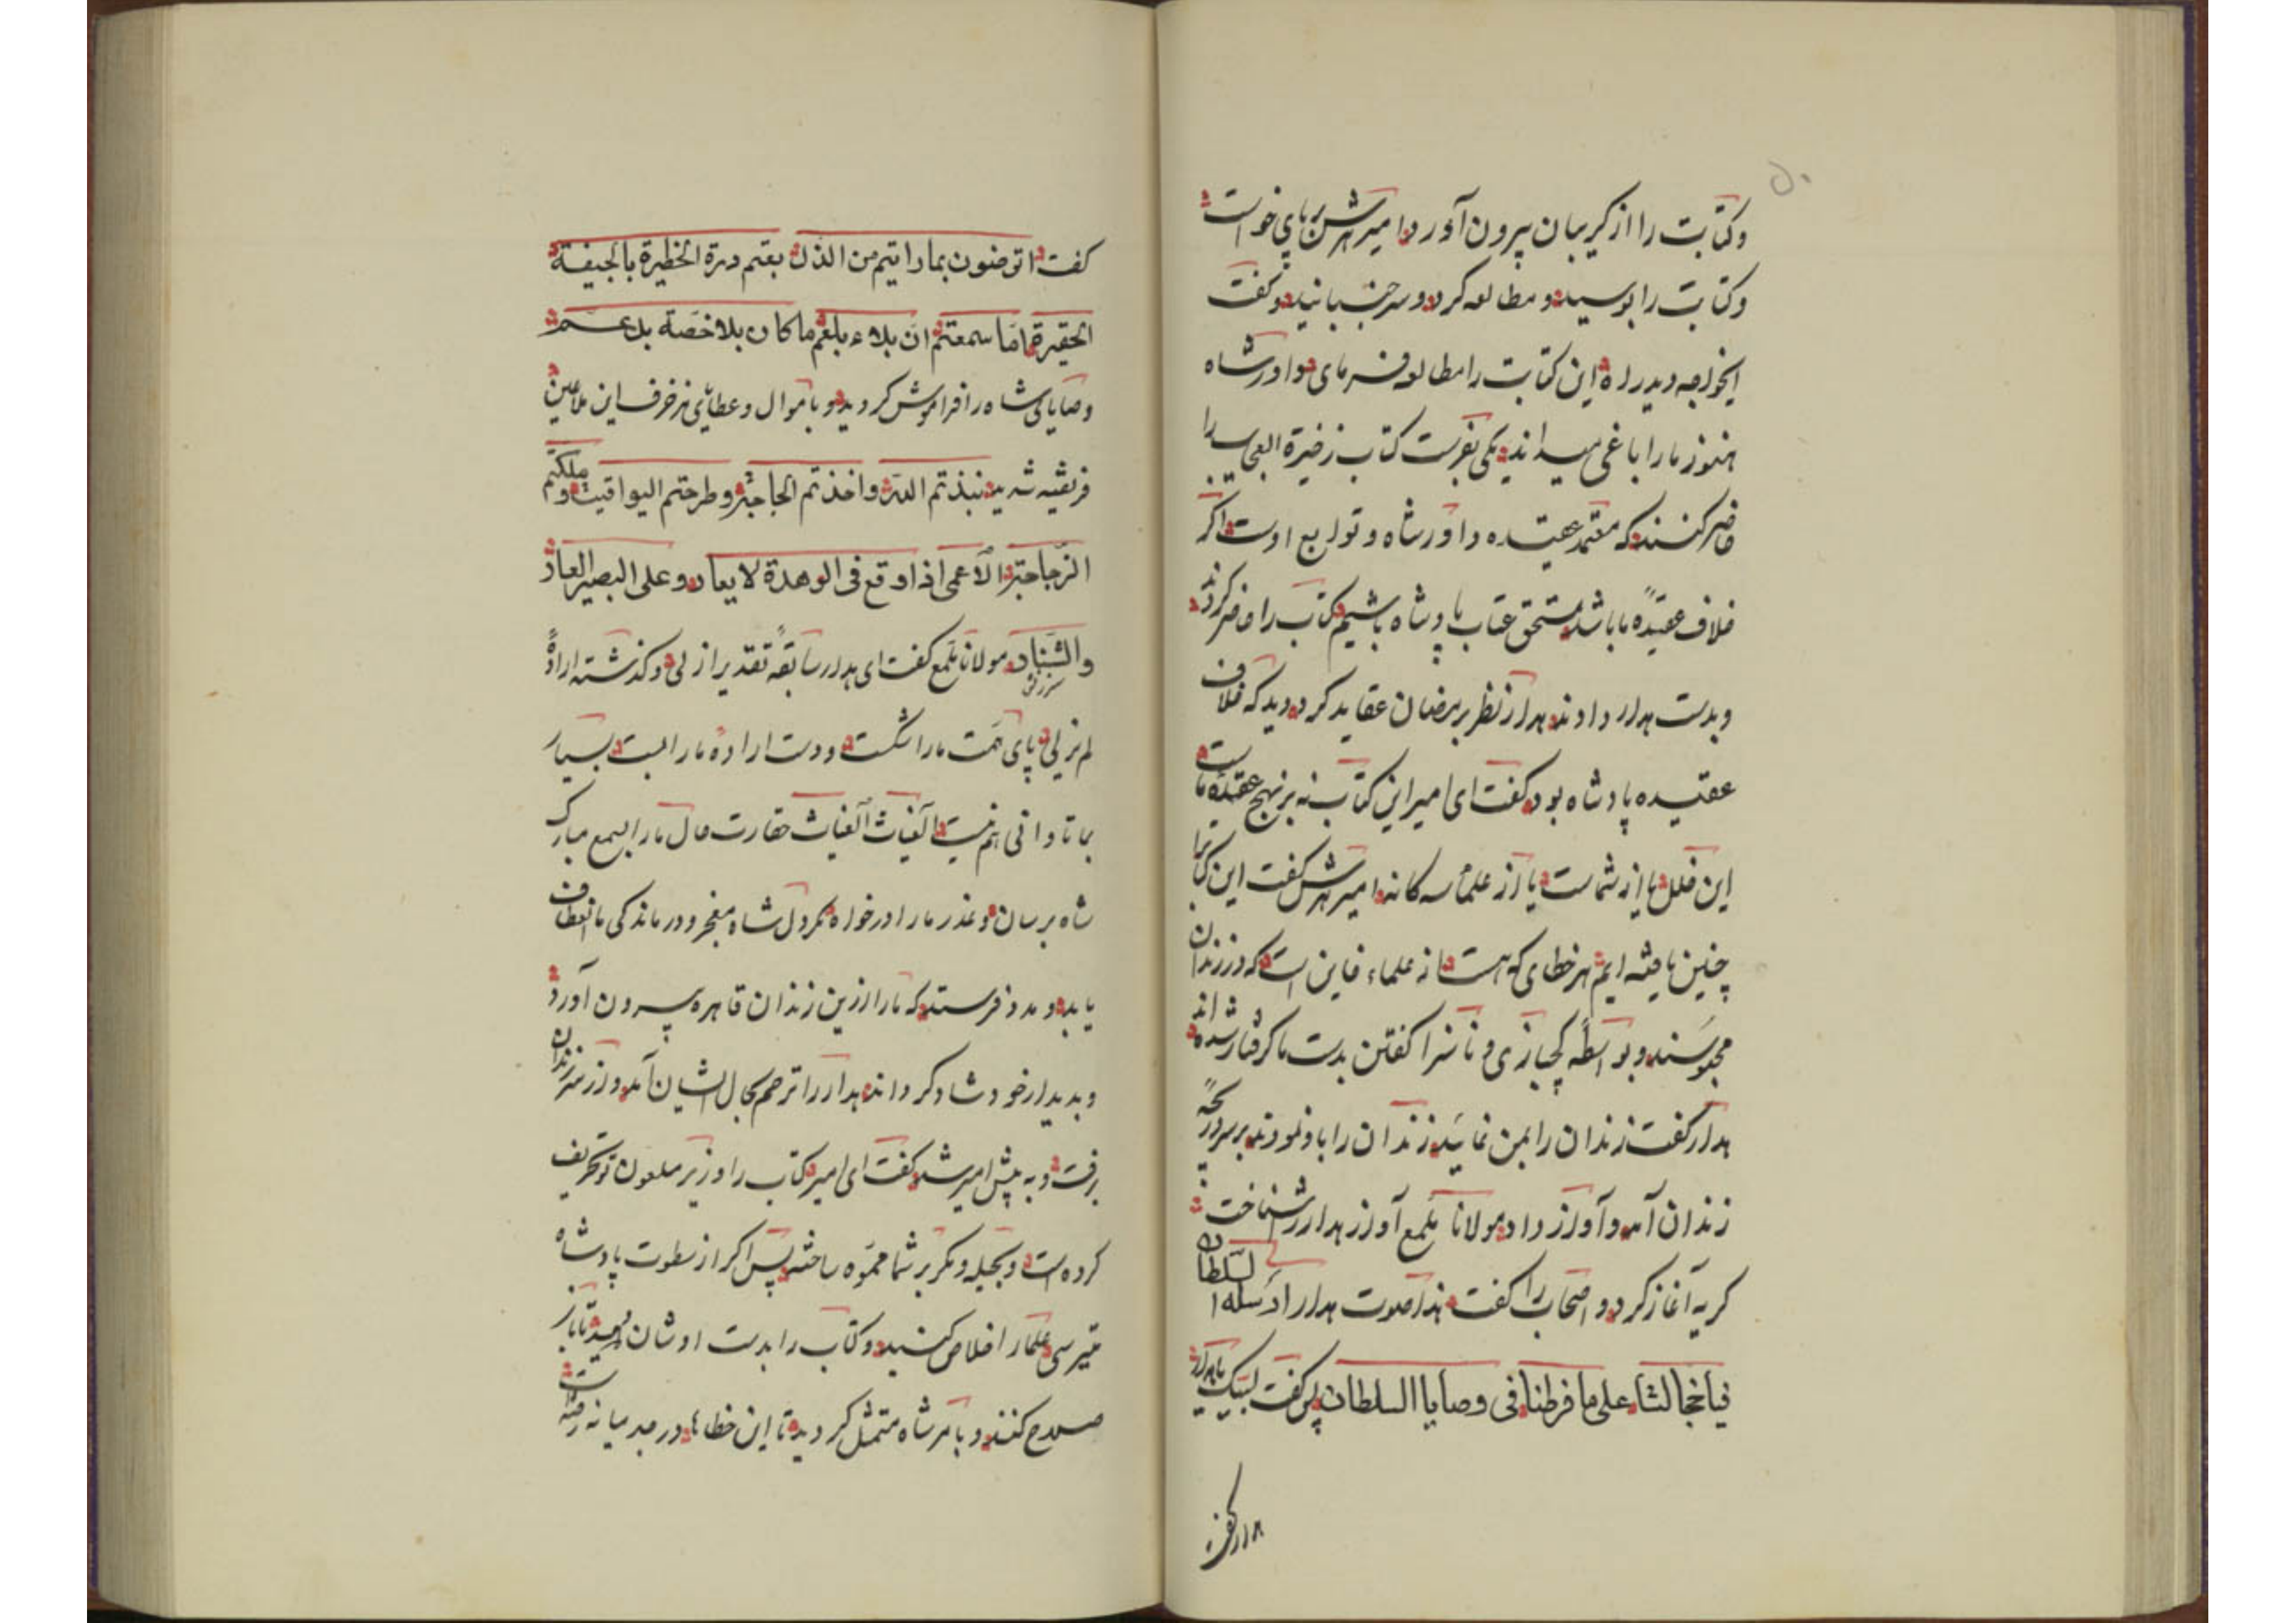 ۵۰
وکتابت را از کریبان بیرون آورد امیر هرش بر پای خواست
وکتابت را بوسید و مطالعه کرد و سر جنبانید و کفت
ایخواجه دیدار این کتابت را مطالعه فرمای داور شاه
هنوز ما را باغی میداند یکی بفرست کتاب ذخیرة العجایب را
حاضر کنند که معتمد عقیده داور شاه و توابع اوست اکر
خلاف عقیدهٔ ما باشد مستحق عتاب پادشاه باشیم کتاب را حاضر کردند
وبدست هدار دادند هدار نظر بر مضان عقاید کرد دید که خلاف
عقیده پادشاه بود کفت ای امیر این کتاب نه بر نهج عقیدهٔ ماست
این خلل یا از شماست یا از علما سه کانه امیر هرش کفت این کتابرا
چنین یافته ایم هر خطای که هست از علماء خاین است که در زندان
محبوسند و بواسطهٔ کجبازی و ناسزا کفتن بدست ما کرفتار شده اند
هدار کفت زندان را بمن نمایید زندان را باو نمودند بر سر دریچهٔ
زندان آمد و آواز داد مولانا یلمع آواز هدار را شناخت
کریه آغاز کرد و اصحاب را کفت هذا صوت هدار ارسله السلطان
فیا خجالتنا علی ما فرطنا فی وصایا السلطان پس کفت لبیک یا هدار
هدار کفت
کفت اترضون بما رایتم من الذل بعتم درة الخطیرة بالجیفة
الحقیرة اما سمعتم ان بلاء بلعم ما کان بلا خصة بل عم
وصایای شاه را فراموش کردید و باموال و عطایای مزخرف این ملاعین
فریفته شدید نبذتم الدر واخذتم الحاجة وطرحتم الیواقیت وملکتم
الزجاجة الاعمی اذا وقع فی الوهدة لا یعاد وعلی البصیر العار
والشنار مولانا یلمع کفت ای هدار سابقهٔ تقدیر ازلی و کذشته ارادهٔ
لم یزلی پای همت ما را شکست و دست ارادهٔ ما را ببست بسیار
بما تاوانی هم نیست الغیاث الغیاث حقارت حال ما را بسمع مبارک
شاه برسان و عذر ما را در خواه مکر دل شاه مفخر ودرماندکی ما انعطاف
یابد و مدد فرستد که ما را ازین زندان قاهره بیرون آورد
و بدیدار خود شاد کرداند هدار را ترحم بحال ایشان آمد و از سر زندان
برفت و به پیش امیر شد کفت ای امیر کتاب را وزیر ملعون تو تحریف
کرده است و بحیله و مکر بر شما مموه ساخته پس اکر از سطوت پادشاه
میترسی علما را خلاص کنید و کتاب را بدست اوشان دهید تا باز
صلاح کنند و بامر شاه متمثل کردید تا این خطاها در میانه